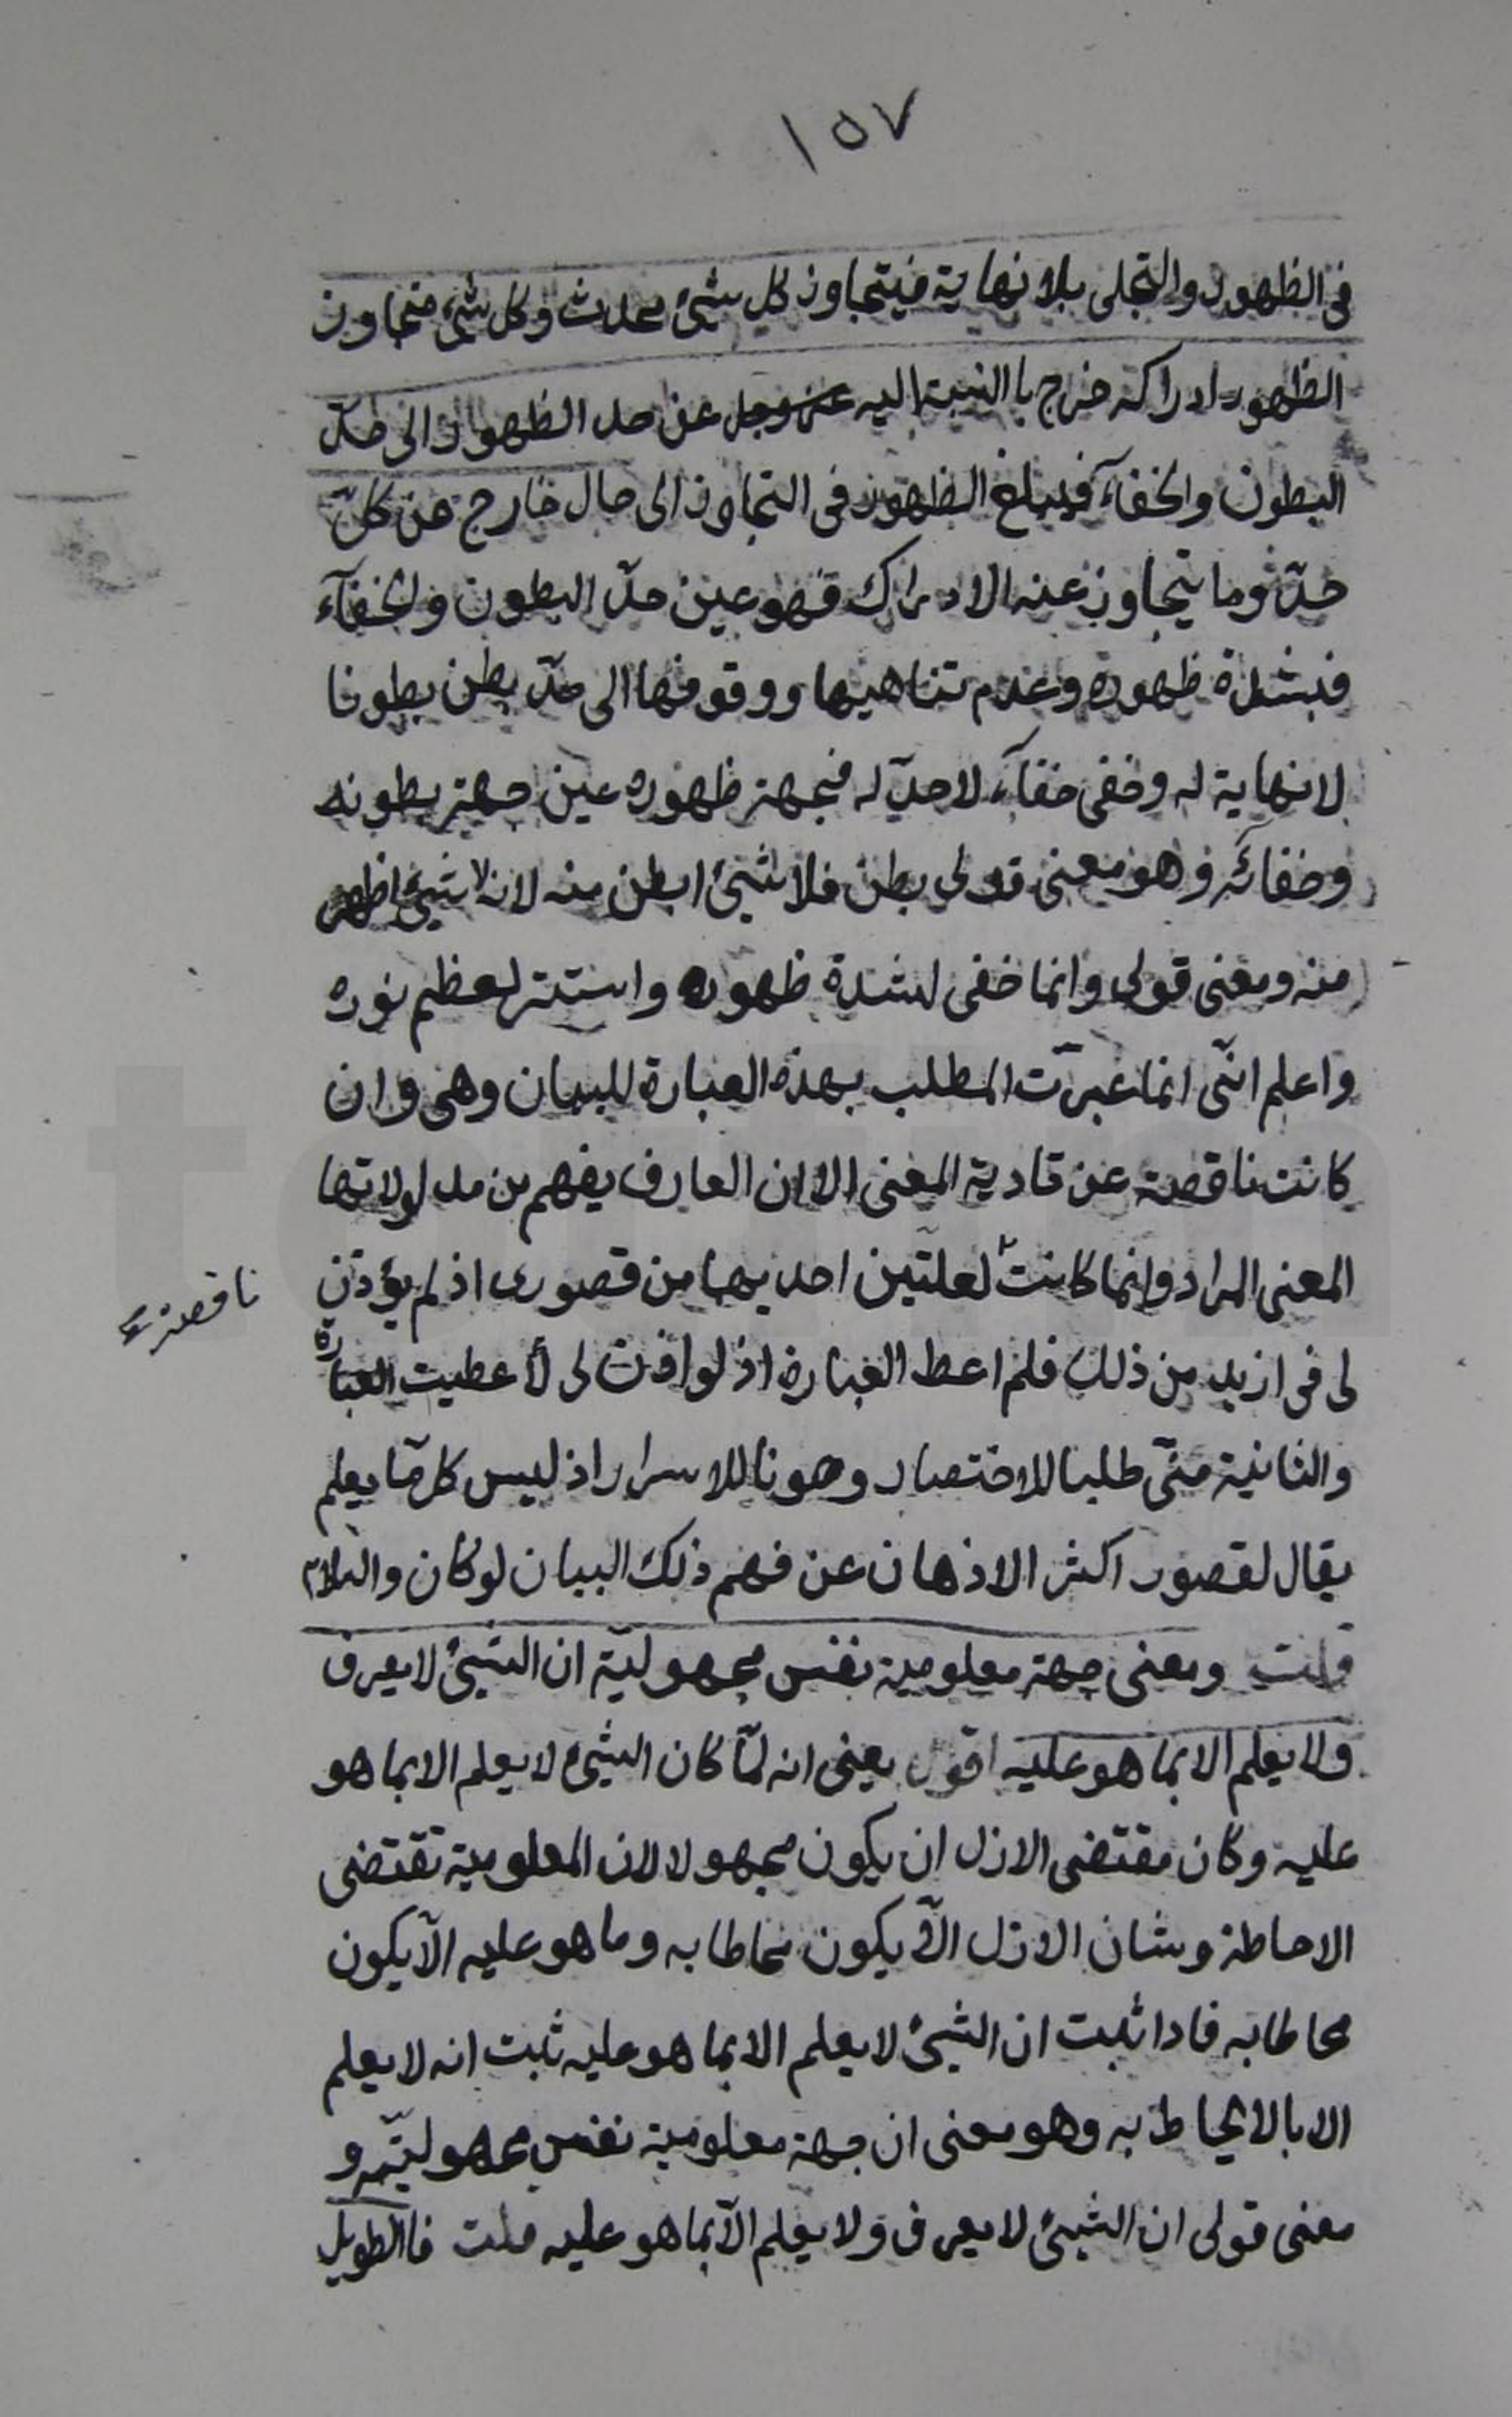 ١٥٧
فى الظهور والتجلى بلا نهاية فيتجاوز كل شئ محدث وكل شئ متجاوز
الظهور ادراكه خرج با النسبة اليه عزوجل عن حد الظهور الى حدّ
البطون والخفآء فيبلغ الظهور فى التجاوز الى حال خارج عن كلّ
حدّ وما يتجاوز عنه الادراك فهو عين حدّ البطون والخفآء
فبشدة ظهوره وعدم تناهيها ووقوفها الى حدّ بطن بطونا
لانهاية له وخفى خفآء لاحدّ له فجهة ظهوره عين جهة بطونه
وخفائه وهو معنى قولى بطن فلا شئ ابطن منه لانه لا شئ اظهر
منه ومعنى قولى وانما خفى لشدة ظهوره واستتر لعظم نوره
واعلم انّى انما عبّرت المطلب بهذه العبارة للبيان وهى وان
كانت ناقصة عن تادية المعنى الا ان العارف يفهم من مدلولاتها
المعنى المراد وانما كانت لعلتين احديهما من قصورى اذ لم يؤذن
ناقصة
لى فى ازيد من ذلك فلم اعط العبارة اذ لو اذن لى لأعطيت العبارة
والثانية منّى طلبا للاختصار وصونا للاسرار اذ ليس كل ما يعلم
يقال لقصور اكثر الاذهان عن فهم ذلك البيان لو كان والسلام
قلت ومعنى جهة معلومية نفس مجهوليّة ان الشئ لا يعرف
ولا يعلم الا بما هو عليه اقول يعنى انه لمّا كان الشئ لا يعلم الا بما هو
عليه وكان مقتضى الازل ان يكون مجهولا لان المعلومية تقتضى
الاحاطة وشان الازل الّا يكون محاطا به وما هو عليه الّا يكون
محاطا به فاذا ثبت ان الشئ لا يعلم الا بما هو عليه ثبت انه لا يعلم
الا بالا يحاط به وهو معنى ان جهة معلومية نفس مجهوليّته و
معنى قولى ان الشئ لا يعرف ولا يعلم الّا بما هو عليه قلت فالطويل